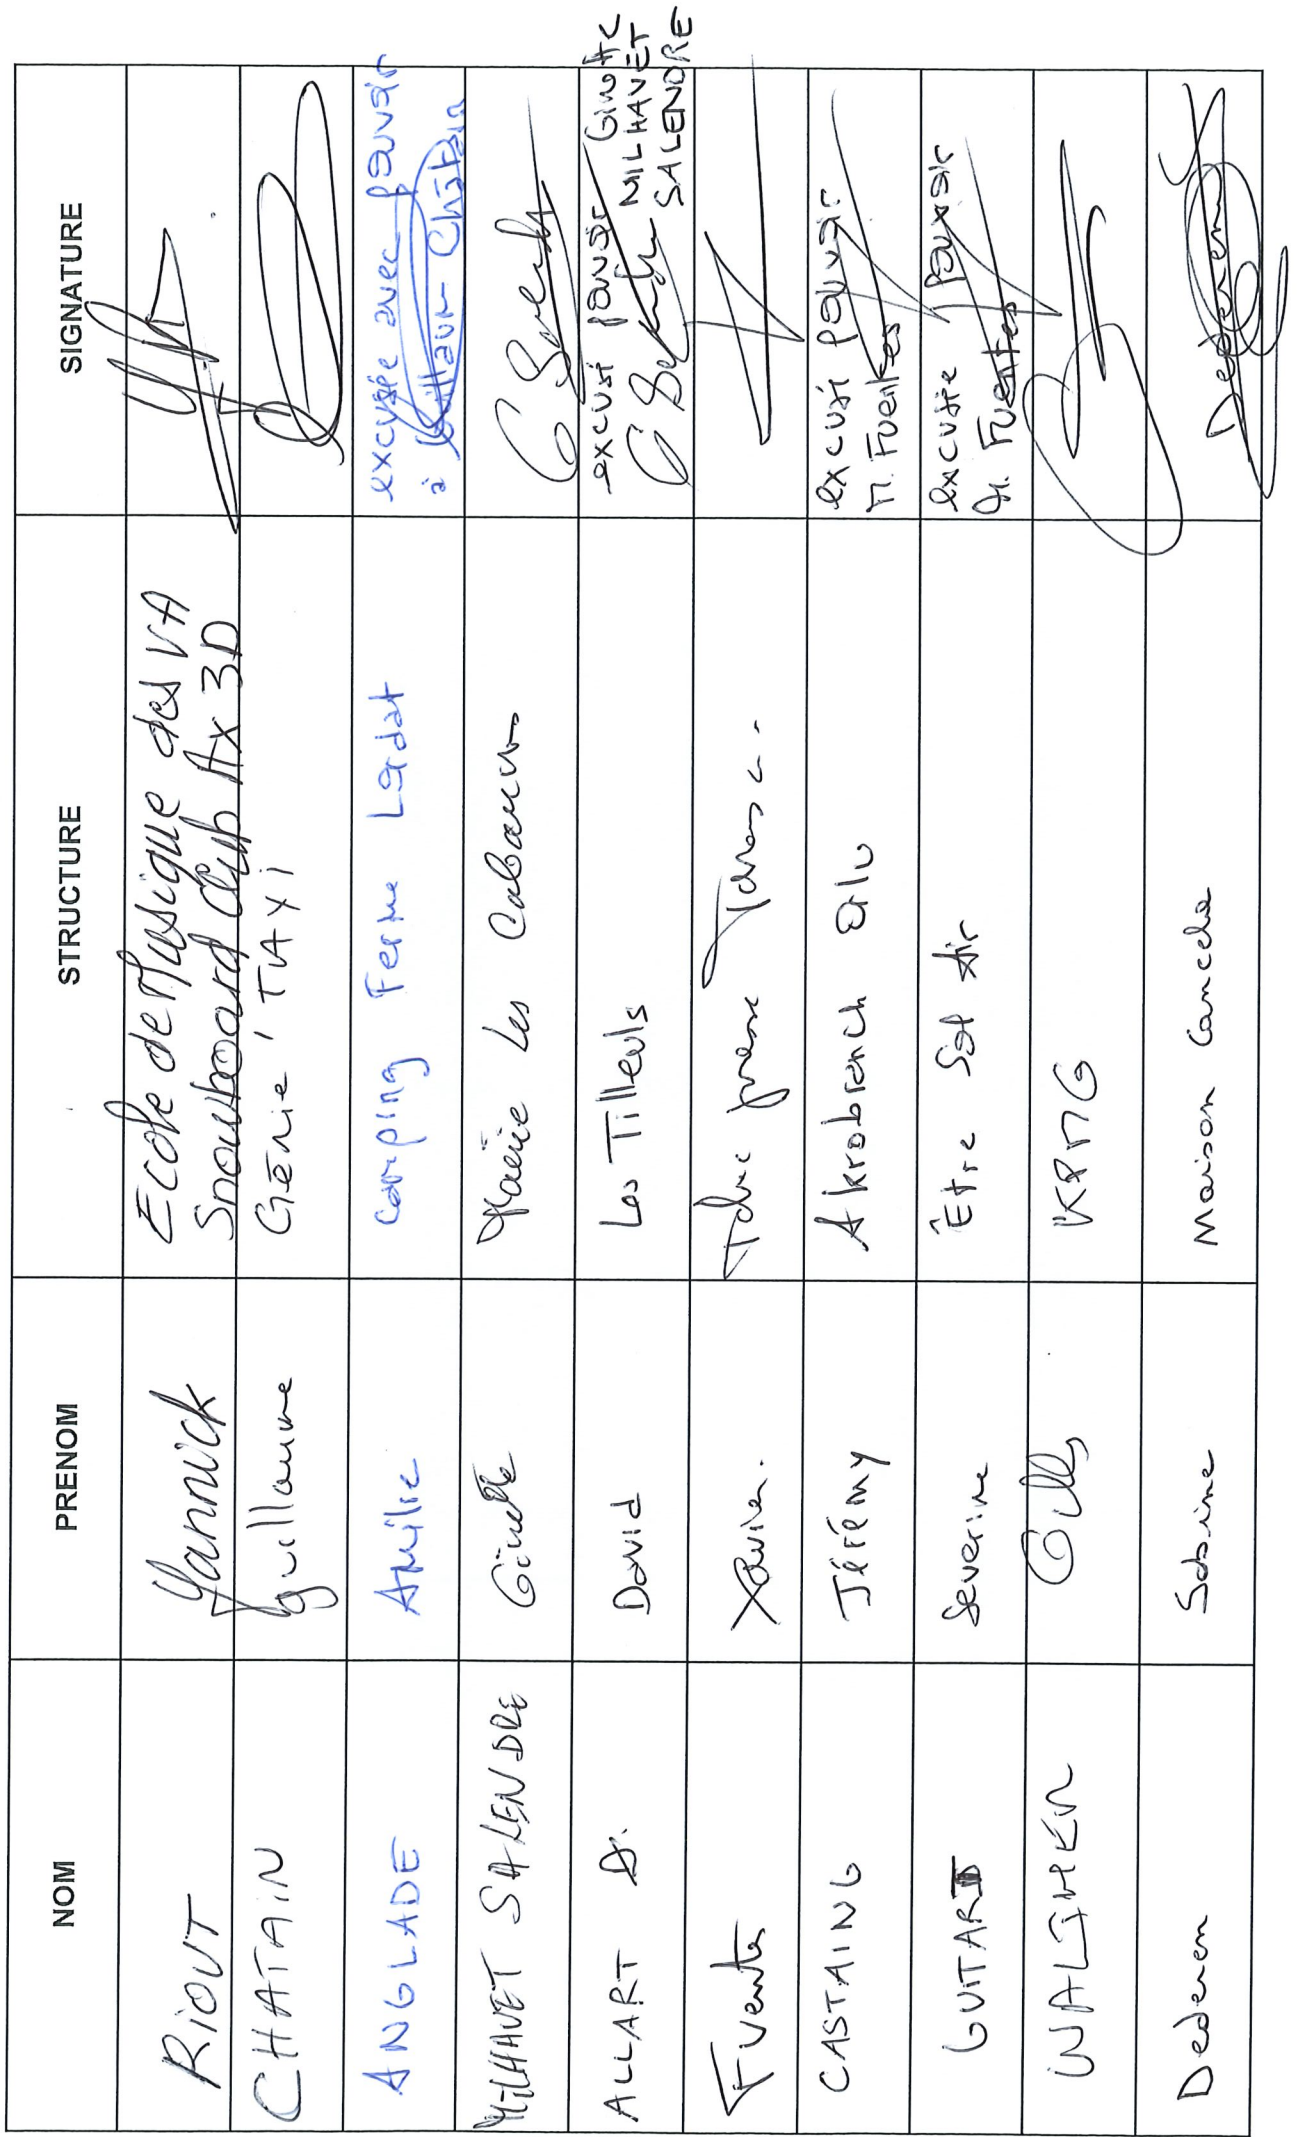 NOM PRENOM STRUCTURE SIGNATURE
RIOUT Yannick Ecole de Musique des VA
Snowboard Club Ax 3D
CHATAIN Guillaume Génie' TAXI
ANGLADE Amélie Camping Ferme Lordat excusée avec pouvoir
à Guillaume Châtain
MILHAVET SALENDRE Ginette Mairie Les Cabannes
ALLART D. David Les Tilleuls excusé pouvoir Ginette
MILHAVET
SALENDRE
Fuentes Xavier.
CASTAING Jérémy Akrobranch Orlu excusé pouvoir
M. Fuentes
GUITARD Severine Être Sat excusée pouvoir
M. Fuentes
Gilles KPMG
Dederen Sabine Maison